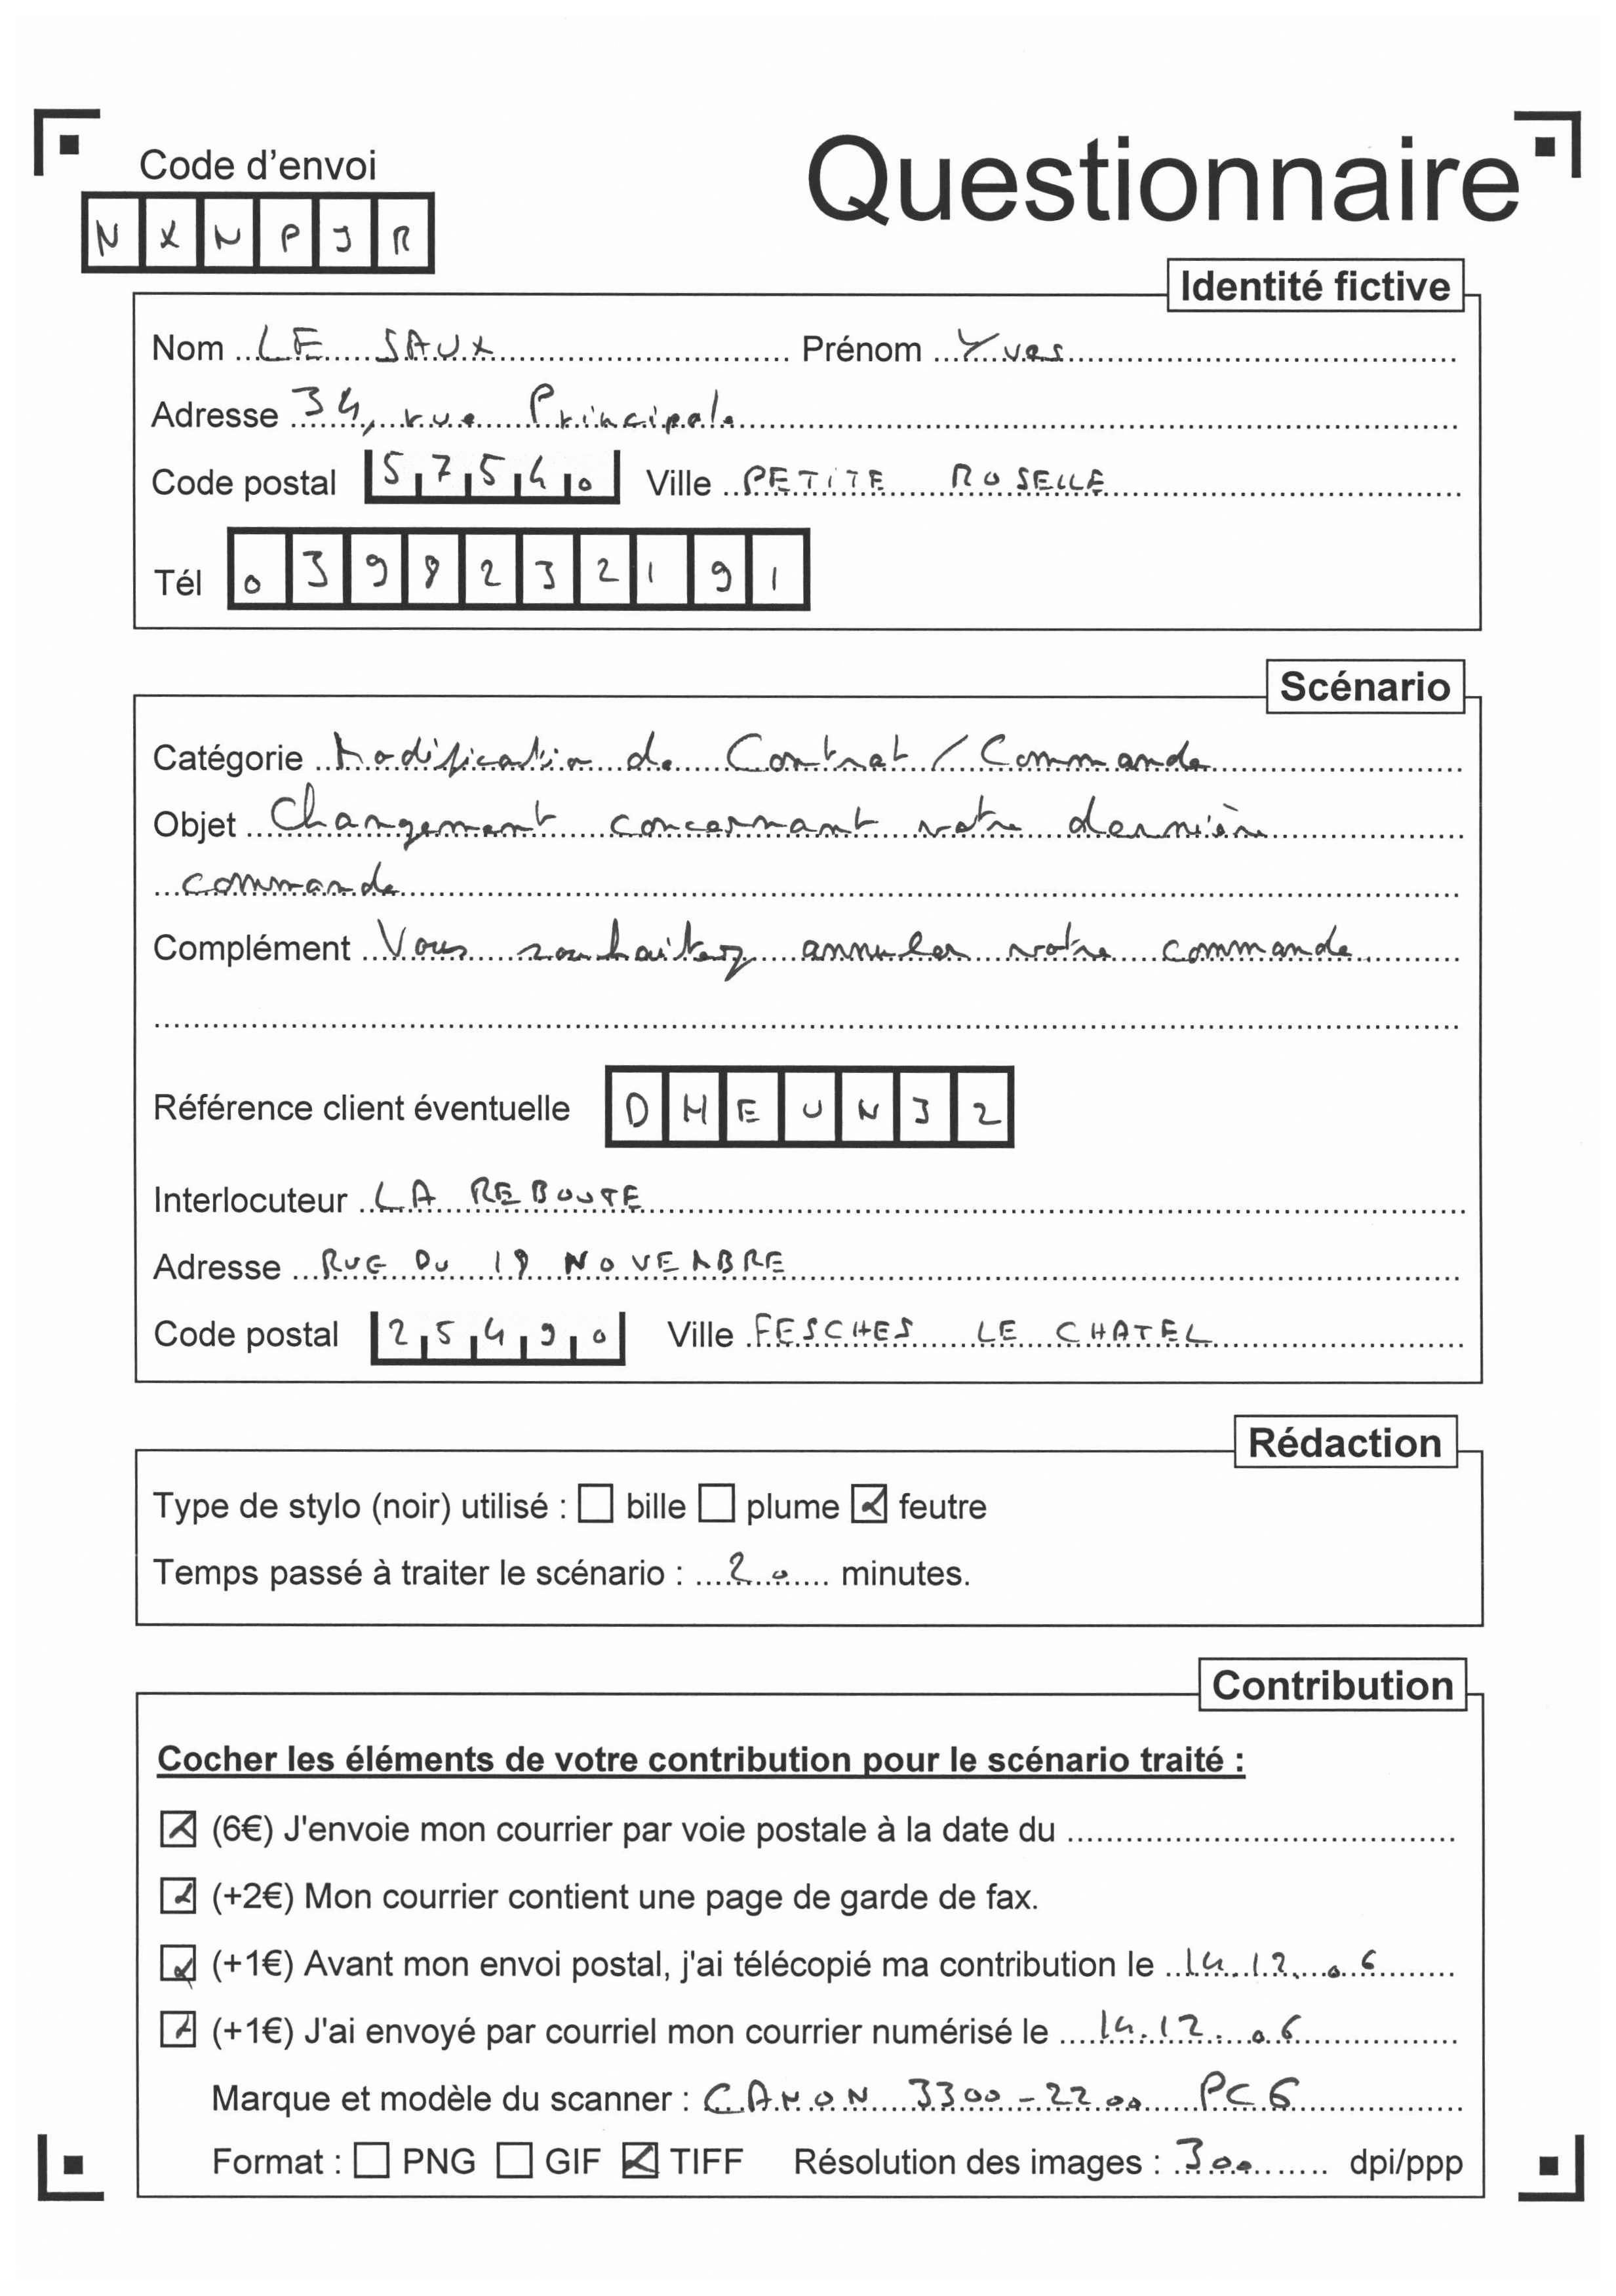 Code d'envoi
Questionnaire
N X N P J R
Identité fictive
Nom LE SAUX Prénom Yves
Adresse 34, rue Principale
Code postal 57540 Ville PETITE ROSELLE
Tél 0398232191
Scénario
Catégorie Modification de Contrat / Commande
Objet Changement concernant votre dernière
commande
Complément Vous souhaitez annuler votre commande.
Référence client éventuelle D H E U N 3 2
Interlocuteur LA REBOUTE
Adresse RUE DU 18 NOVEMBRE
Code postal 25490 Ville FESCHES LE CHATEL
Rédaction
Type de stylo (noir) utilisé : bille plume feutre
Temps passé à traiter le scénario : 20 minutes.
Contribution
Cocher les éléments de votre contribution pour le scénario traité :
(6€) J'envoie mon courrier par voie postale à la date du
(+2€) Mon courrier contient une page de garde de fax.
(+1€) Avant mon envoi postal, j'ai télécopié ma contribution le 14.12.06
(+1€) J'ai envoyé par courriel mon courrier numérisé le 14.12.06
Marque et modèle du scanner : CANON 3300-2200 PC6
Format : PNG GIF TIFF Résolution des images : 300 dpi/ppp